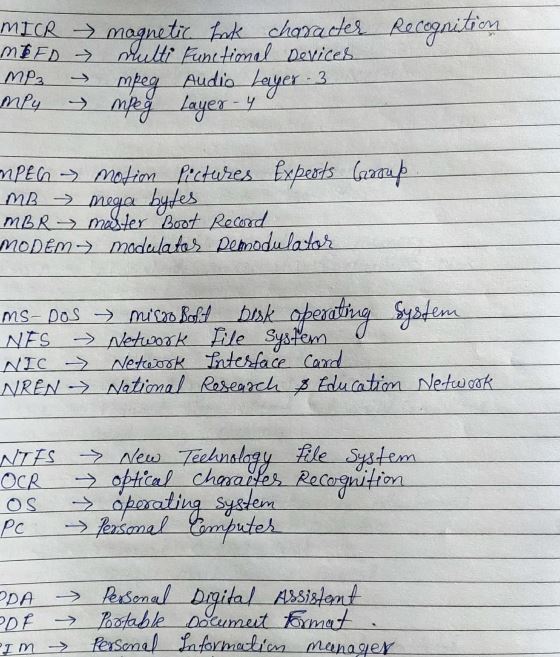 MICR → magnetic Ink character Recognition
MFD → multi Functional Devices
MP3 → mpeg Audio Layer-3
MP4 → mpeg Layer-4
MPEG → motion Pictures Experts Group
MB → mega bytes
MBR → master Boot Record
MODEM → modulator Demodulator
MS-DOS → microsoft Disk operating System
NFS → Network File System
NIC → Network Interface Card
NREN → National Research & Education Network
NTFS → New Technology File System
OCR → optical character Recognition
OS → operating system
PC → Personal Computer
PDA → Personal Digital Assistant
PDF → Portable Document Format.
PIM → Personal Information manager